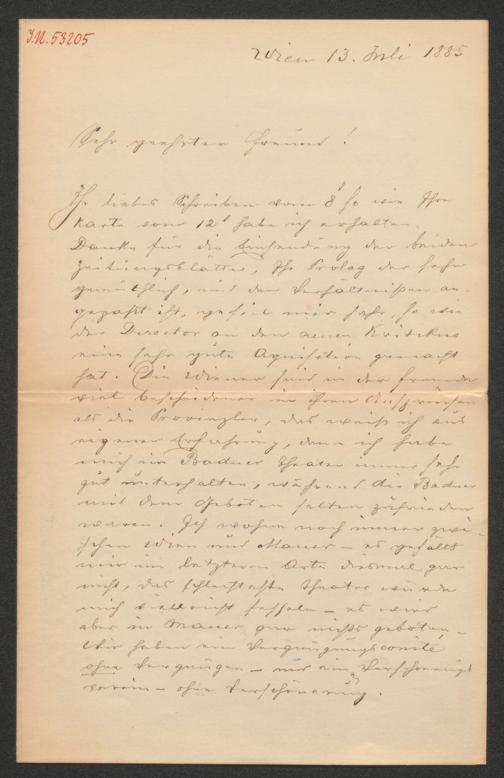 J.N. 53205
Wien 13. Juli 1885
Sehr geehrter Freund!
Ihr liebes Schreiben vom 8t so wie Ihre
Karte vom 12t habe ich erhalten.
Danke für die Einsendung der beiden
Zeitungsblätter, Ihr Prolog der sehr
gemüthlich, und den Verhältnißen an-
gepaßt ist, gefiel mir sehr, so wie
der Director an dem neuen Kritikus
eine sehr gute Aquisition gemacht
hat. Die Wiener sind in der Fremde
viel bescheidener in ihren Ansprüchen
als die Provinzler, das weiß ich aus
eigener Erfahrung, denn ich habe
mich im Badner Theater immer sehr
gut unterhalten, während die Badner
mit dem Gebotenen selten zufrieden
waren. Ich wohne noch immer zwi-
schen Wien und Mauer – es gefällt
mir im letzteren Orte diesmal gar
nicht, das schlechteste Theater würde
mich vielleicht fesseln – es wird
aber in Mauer gar nichts geboten. –
Wir haben ein Vergnügungscomité
ohne Vergnügen – und ein Verschönerungs
verein – ohne Verschönerung.